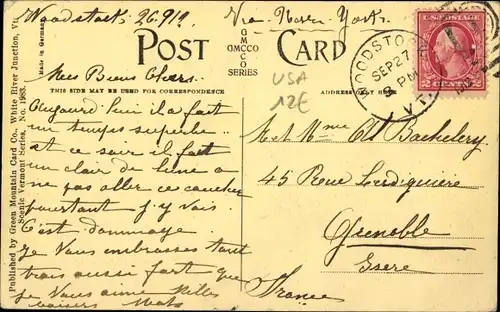 Woodstock, 26.9/12
Via - New - York
Made in Germany
POST CARD
GMCCO
GMCCO
SERIES
THIS SIDE MAY BE USED FOR CORRESPONDENCE
ADDRESS ONLY HERE
USA
12E
WOODSTOCK
SEP 27
PM
VT.
U.S. POSTAGE
2 CENTS 2
Published by Green Mountain Card Co., White River Junction, Vt.
Scenic Vermont Series. No. 1983.
Mes Biens Chers.
Aujourd'hui il a fait
un temps superbe
et ce soir il fait
un clair de lune a
ne pas aller ce coucher
pourtant j'y vais.
C'est dommage
Je vous embrasses tant
trais aussi fort que
je Vous aime Milles
baisers
M et Mme Bachelery
45 Rue Lesdiguière
Grenoble
Isere
France